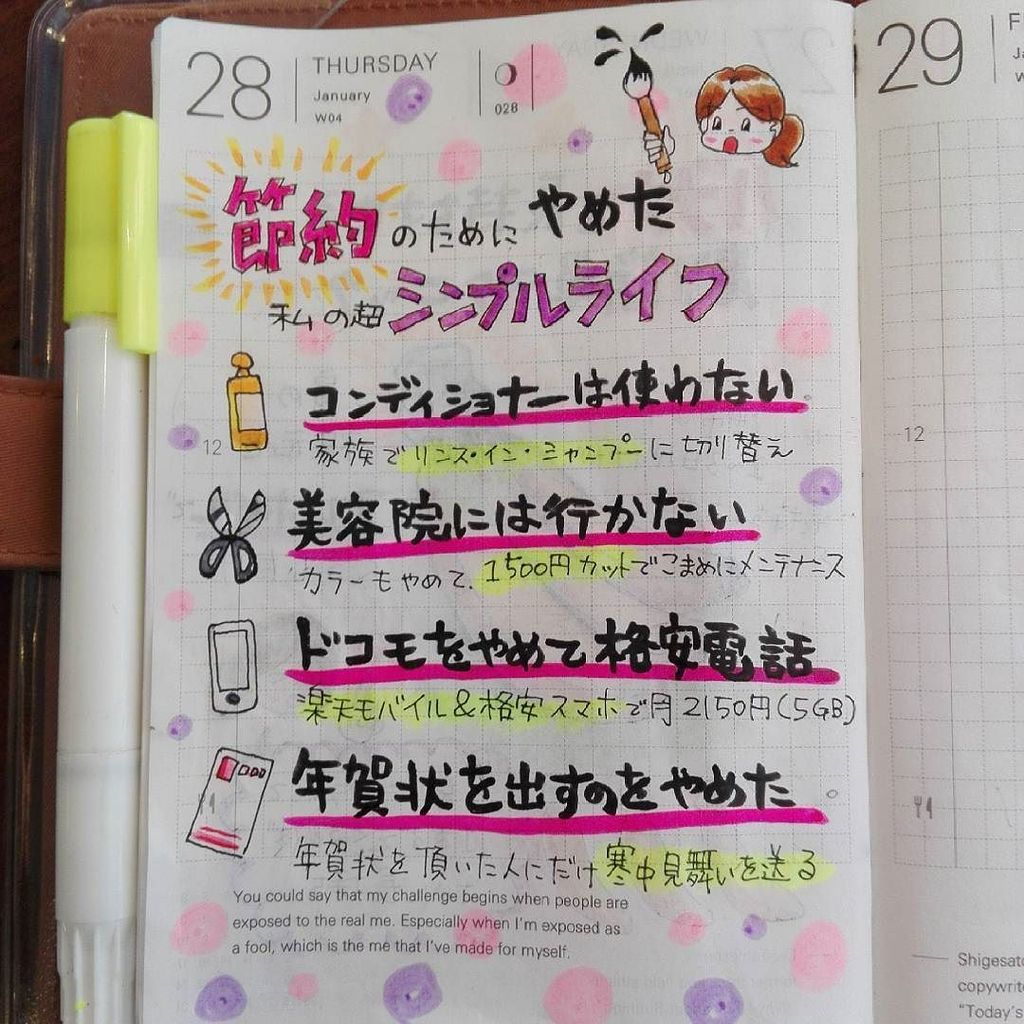 28 THURSDAY
January
W04
028
29
節約のためにやめた
私の超シンプルライフ
コンディショナーは使わない
12 家族でリンス・イン・シャンプーに切り替え
12
美容院には行かない
カラーもやめて、1500円カットでこまめにメンテナンス
ドコモをやめて格安電話
楽天モバイル&格安スマホで月2150円(5GB)
年賀状を出すのをやめた。
年賀状を頂いた人にだけ寒中見舞いを送る
You could say that my challenge begins when people are
exposed to the real me. Especially when I'm exposed as
a fool, which is the me that I've made for myself.
"Today's